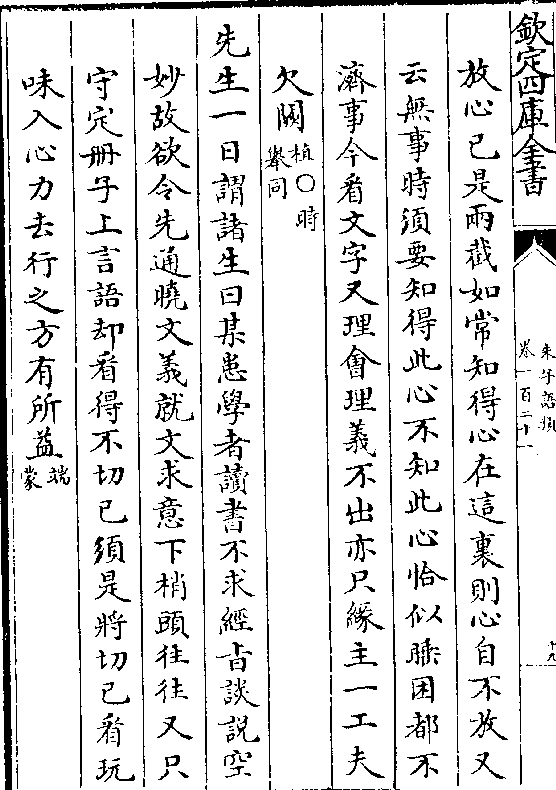 欽定四庫全書
朱子語類
卷一百二十一
十九
放心已是兩截如常知得心在這裏則心自不放又
云無事時須要知得此心不知此心恰似睡困都不
濟事今看文字又理會理義不出亦只緣主一工夫
欠闕植○時舉同
先生一日謂諸生曰某患學者讀書不求經旨談說空
妙故欲令先通曉文義就文求意下梢頭往往又只
守定冊子上言語却看得不切已須是將切已看玩
味入心力去行之方有所益端蒙